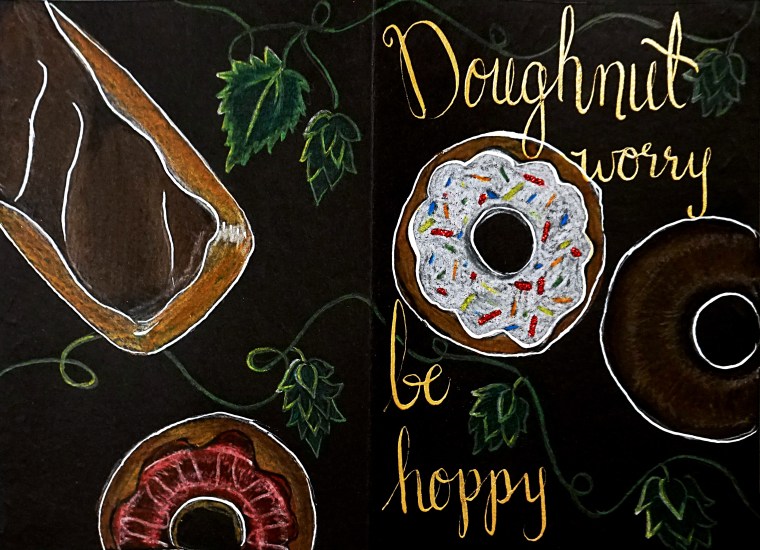 Doughnut
worry
be
hoppy